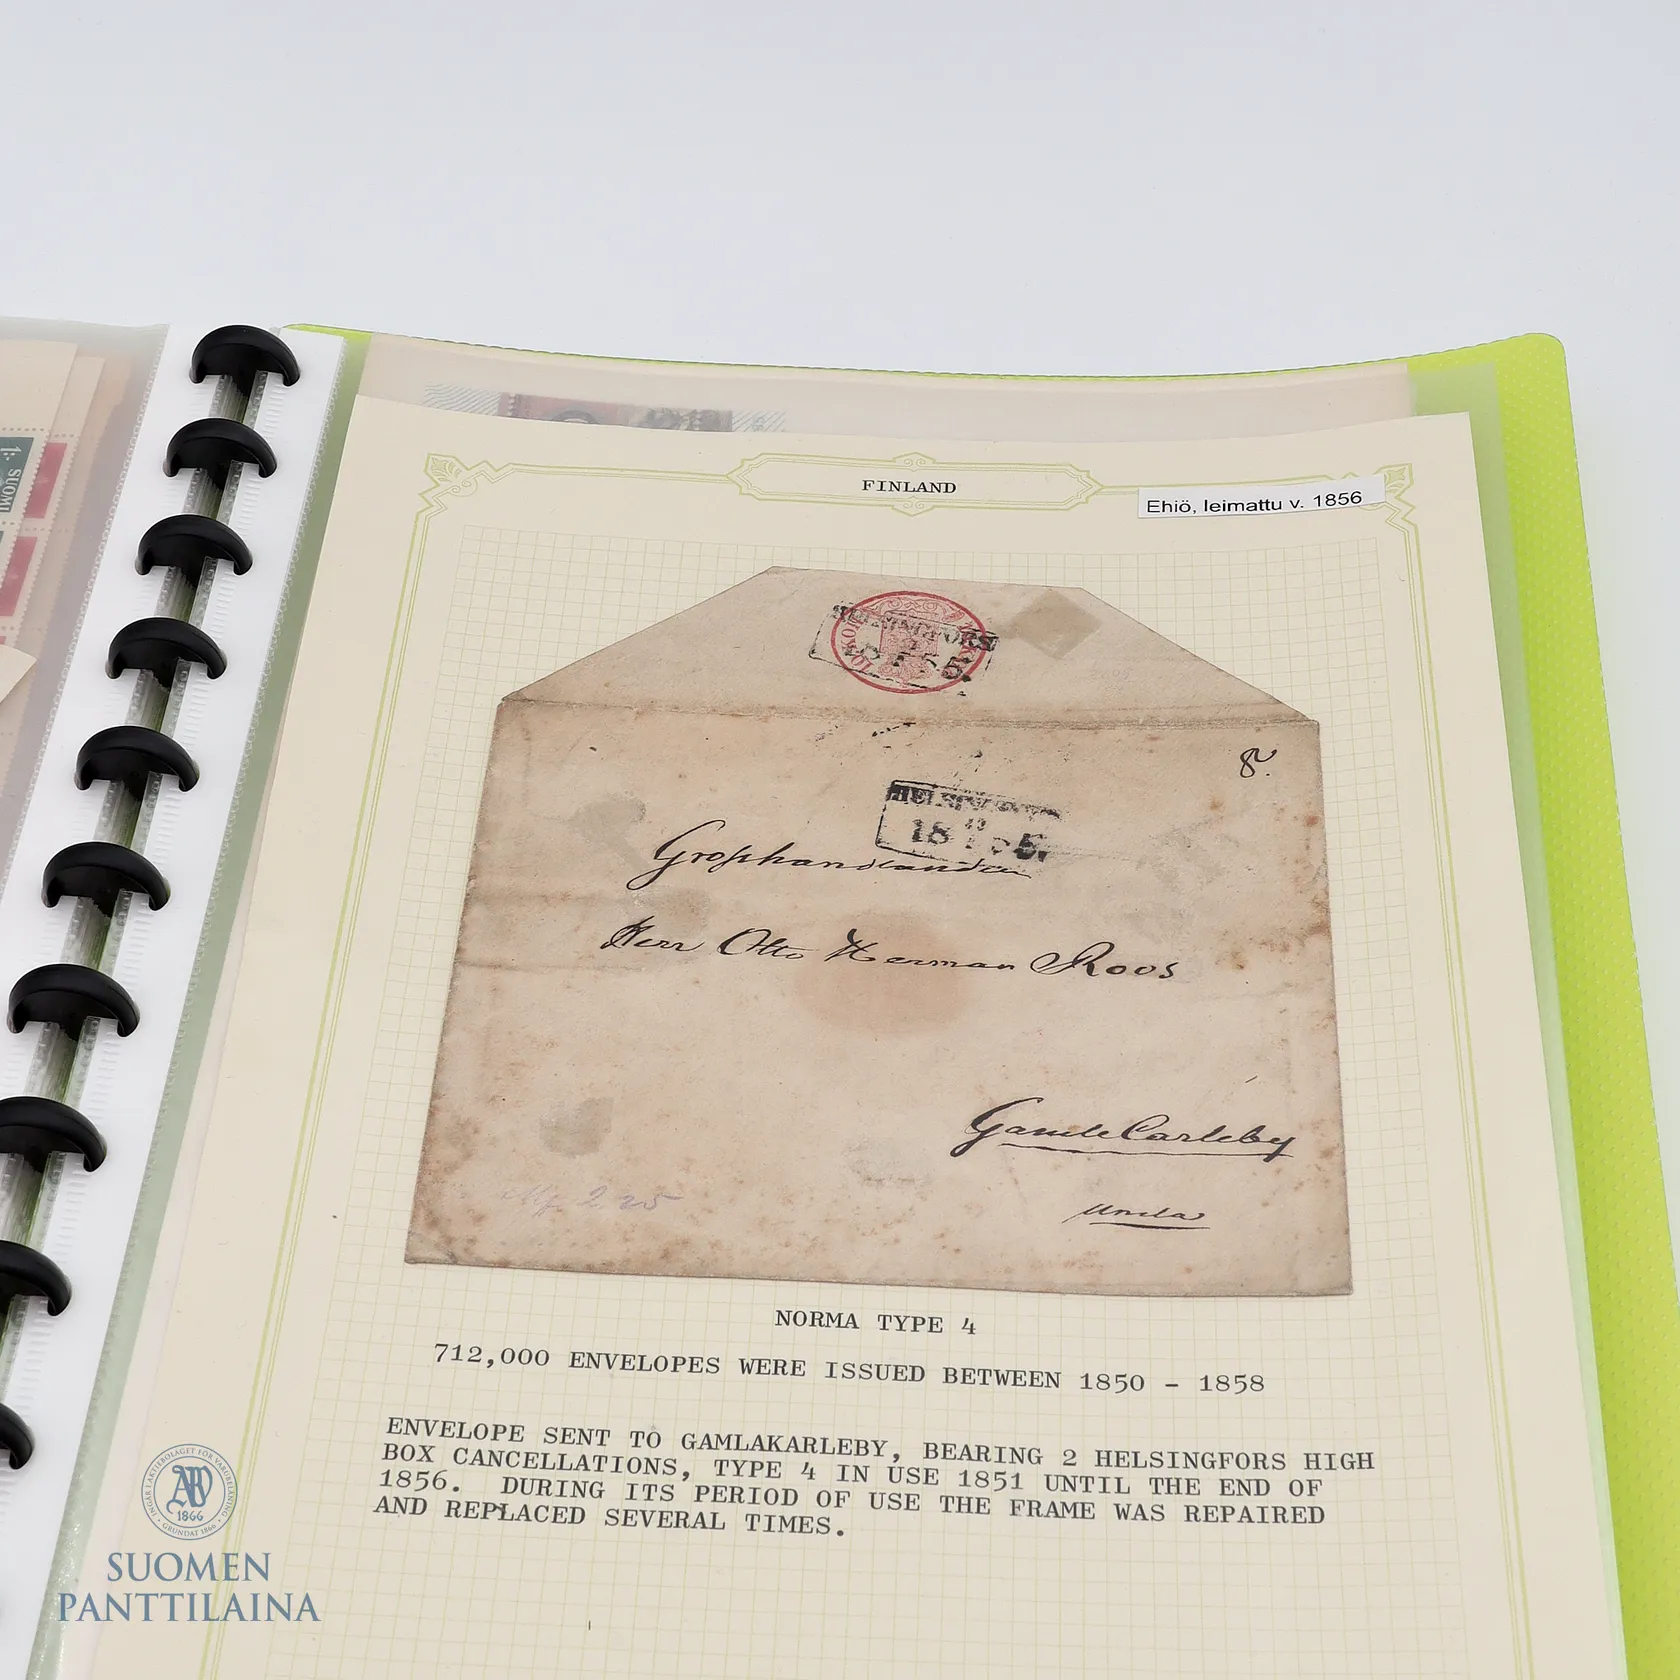 FINLAND
Ehiö, leimattu v. 1856
HELSINGFORS
HELSINGFORS
18
Grosshandlanden
Herr Otto Herman Roos
GamleCarleby
NORMA TYPE 4
712,000 ENVELOPES WERE ISSUED BETWEEN 1850 - 1858
ENVELOPE SENT TO GAMLAKARLEBY, BEARING 2 HELSINGFORS HIGH
BOX CANCELLATIONS, TYPE 4 IN USE 1851 UNTIL THE END OF
1856. DURING ITS PERIOD OF USE THE FRAME WAS REPAIRED
AND REPLACED SEVERAL TIMES.
1:-
SUOMI
1866
GRUNDAT 1866
SUOMEN
PANTTILAINA